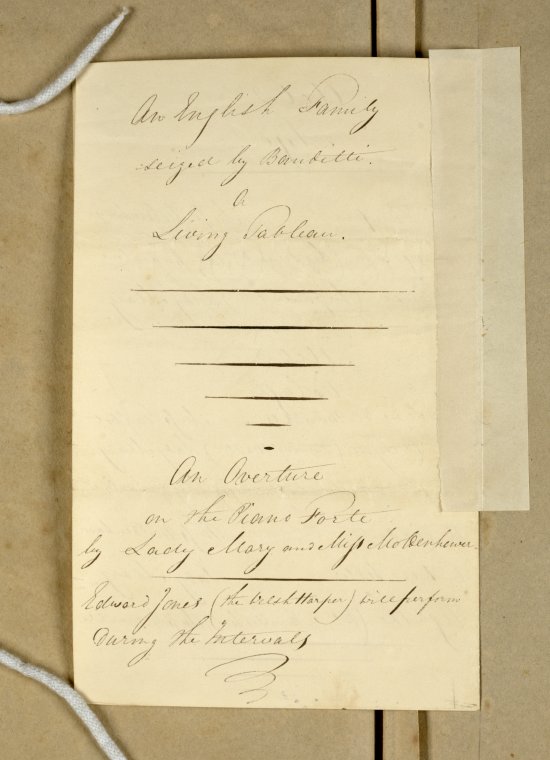 An English Family
seized by Banditti.
A
Living Tableau.
An Overture
on the Piano Forte
by Lady Mary and Miss Mollenhower.
Edward Jones (the Welsh Harper) will perform
During the Intervals